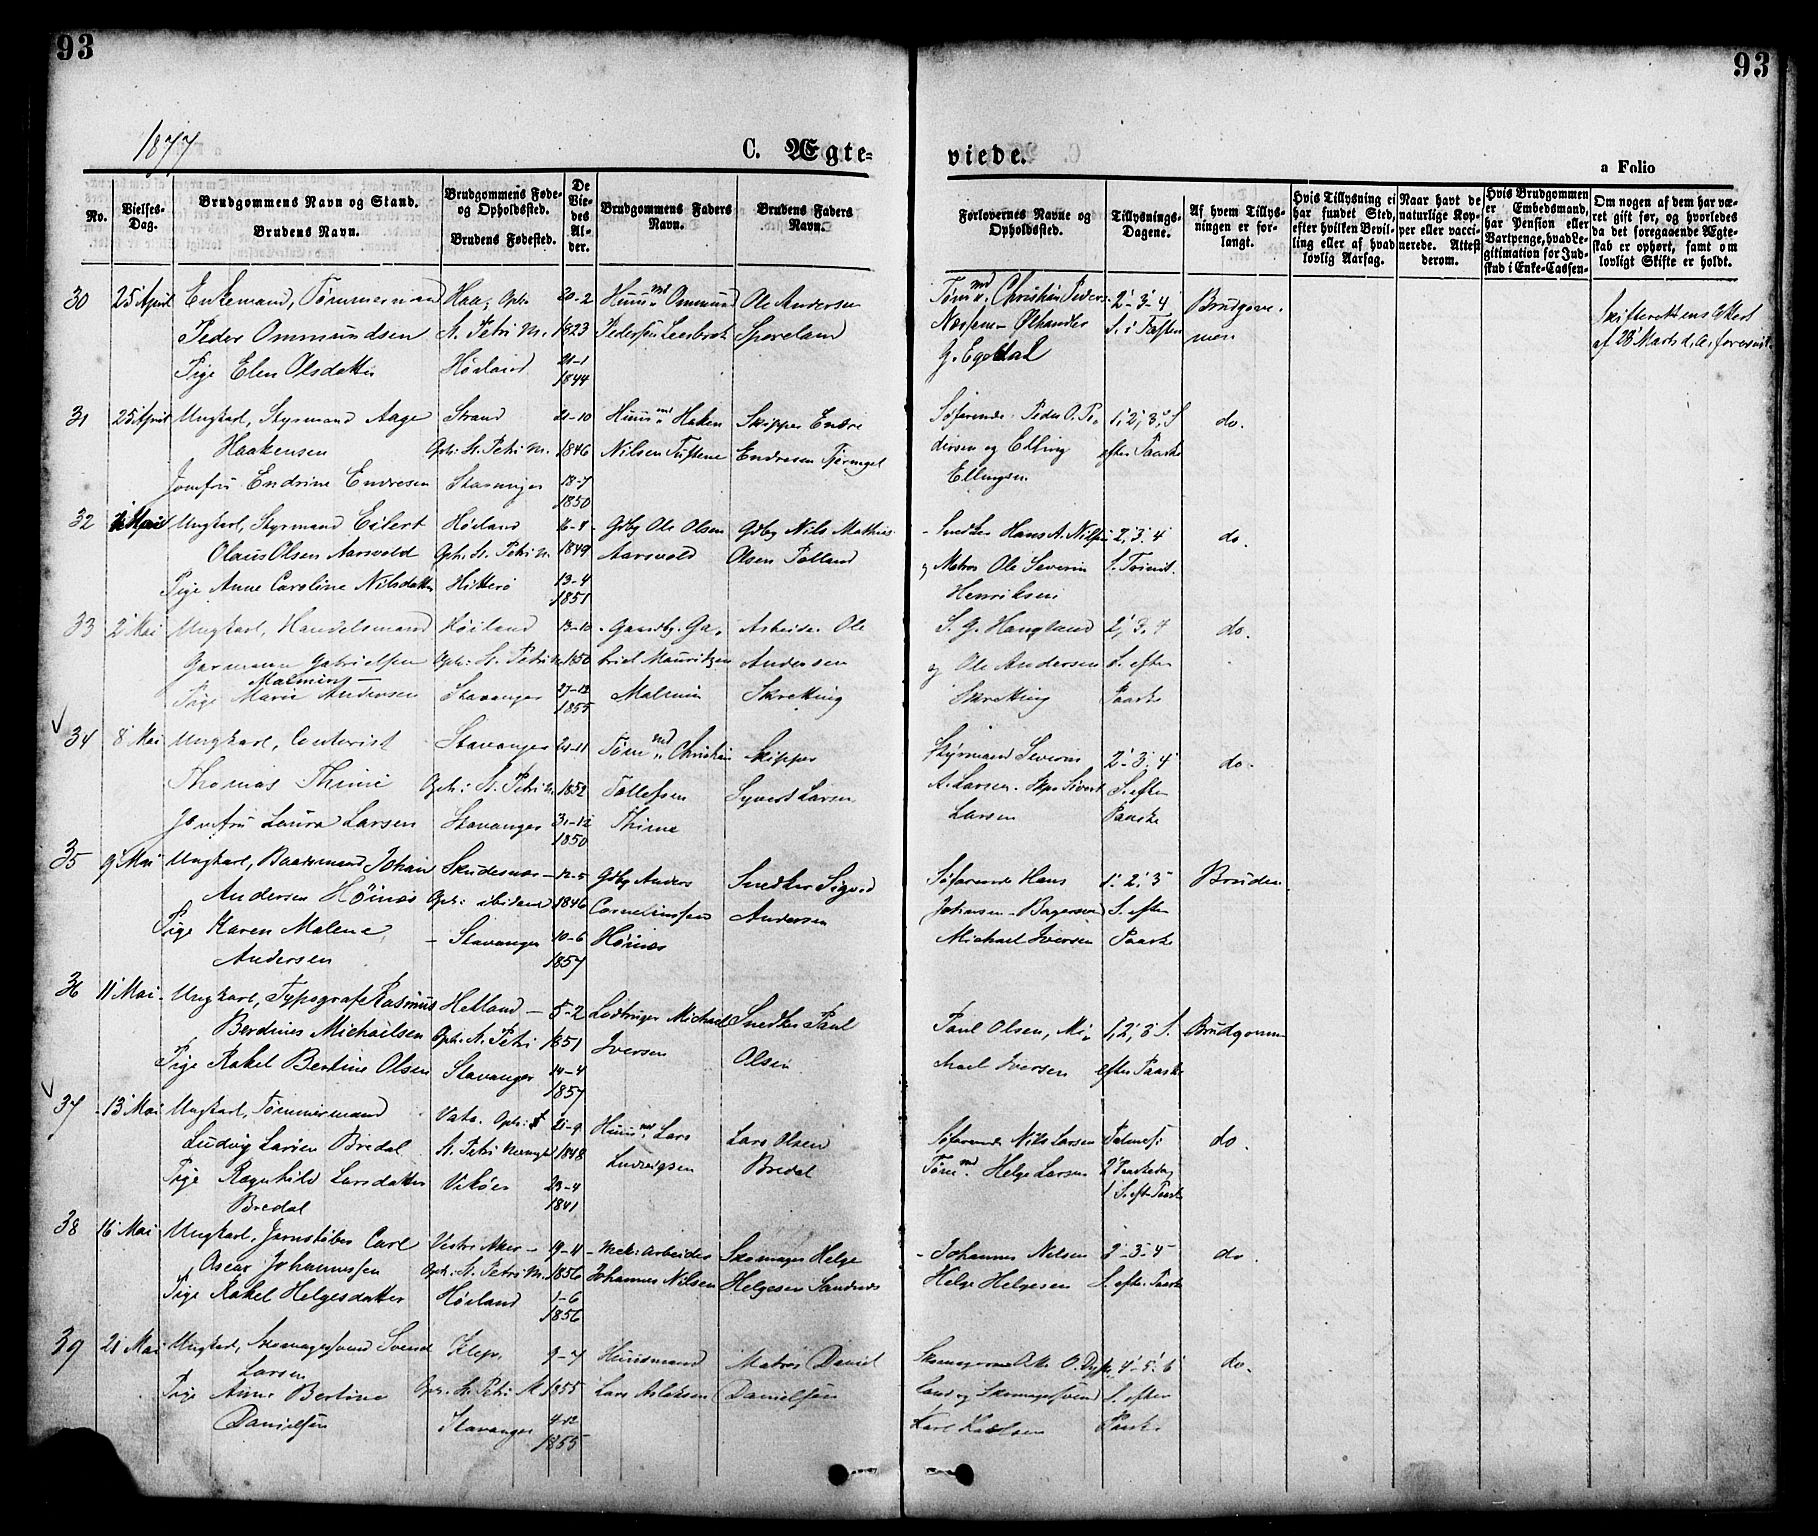 93
93
1877
C. Ægte-
viede.
a Folio
No.
Vielses-
Dag.
Brudgommens Navn og Stand.
Brudens Navn.
Brudgommens Føde-
og Opholdssted.
Brudens Fødested.
De
Vie-
des
Al-
der.
Brudgommens Faders
Navn.
Brudens Faders
Navn.
Forlovernes Navne og
Opholdssted.
Tillysnings-
Dagene.
Af hvem Tillys-
ningen er for-
langt.
Hvis Tillysning ei
har fundet Sted,
efter hvilken Bevil-
ling eller af hvad
lovlig Aarsag.
Naar havt de
naturlige Kop-
per eller vacci-
nerede. Attest
derom.
Hvis Brudgommen
er Embedsmand,
har Pension eller
Vartpenge, hvad Le-
gitimation for Ind-
skud i Enke-Cassen.
Om nogen af dem har væ-
ret gift før, og hvorledes
da det foregaaende Ægte-
skab er ophørt, samt om
lovligt Skifte er holdt.
30 25 April Enkemand, Tømmermand Haa, Oph: 20-2 Huusmd Ommund Ole Andersen
Peder Ommundsen St. Petri M. 1823 Pedersen Sporeland
Pige Elen Olsdatter Høiland 21-1
1844
Tømmd Christian Peder 2'-3'-4' Brudgom-
Ølhandler S. i Fasten men
G. Egeland
Skifterettens Attest
af 28 Marts d.A. forevist.
31 25 April Ungkarl, Styrmand Aage Strand 21-10 Huusmd Haken Skipper Endre
Haakensen Oph: St. Petri M. 1846 Nilsen Tuftene Endresen
Jomfru Endrine Endresen Stavanger 18-7
1850
Søfarende Peder O. Pe- 1', 2', 3' S do.
dersen og Elling efter Paaske
Ellingsen
32 Mai Ungkarl, Styrmand Eilert Høiland 16-4 Gdbg Ole Olsen Gdbg Nils Mathias
Olaus Olsen Aarsvold Oph: St. Petri M. 1849 Aarsvold Olsen
Pige Anne Caroline Nilsdatter Hitterø 13-4
1851
Snedker Hans A. Nilsen 2', 3', 4' do.
og Matros Ole Severin S. Trinit.
Henriksen
33 2' Mai Ungkarl, Handelsmand Høiland 13-10 Gaardbg. Ga- Arbeider Ole
Garmann Gabrielsen Oph: St. Petri M. 1850 briel Mauritzen Andersen
Malmin
Pige Marie Andersen Stavanger 27-12 Malmin Skretting
1855
S. G. Haugland 2', 3', 4' do.
og Ole Andersen S. efter
Skretting Paaske
34 8' Mai Ungkarl, Contorist Stavanger 21-11 Tømmd Christian Skipper
Thomas Thime Oph: St. Petri M. 1852 Tollefsen Syvert Larsen
Jomfru Laura Larsen Stavanger 31-12 Thime
1850
Styrmand Severin 2'-3', 4' do.
A. Larsen. Skpr Sivert S. efter
Larsen Paaske
35 9' Mai Ungkarl, Baadsmand Johan Skudesnæs 12-5 Gdbg Anders Snedker Sigvard
Andersen Høines Oph: ibidem 1846 Corneliussen Andersen
Pige Karen Malene Stavanger 10-6 Høines
Andersen 1857
Søfarende Hans 1', 2', 3' Bruden
Johansen S. efter
Michael Iversen Paaske
36 11' Mai Ungkarl, Typograf Rasmus Hetland 5-2 Michael Snedker Paul
Berdines Michaelsen Oph: St. Petri 1851 Iversen Olsen
Pige Rakel Bertine Olsen Stavanger 14-4
1857
Paul Olsen, Mi- 1', 2', 3' S. Brudgommen
chael Iversen efter Paaske
37 13' Mai Ungkarl, Tømmermand Vats. Oph: 21-9 Huusmd Lars Lars Olsen
Ludvig Larsen Bredal St. Petri 1848 Ludvigsen Bredal
Pige Ragnhild Larsdatter Vikøer 23-4
Bredal 1841
Søfarende Nils Larsen Palmes: do
Tømmd Helge Larsen 2' Paaskedag
1' S. eft Paaske
38 16' Mai Ungkarl, Jernstøber Carl Vestre Aker 19-4 Mek: Arbeider Skomager Helge
Oscar Johannessen Oph: St. Petri M. 1856 Johannes Nilsen Helgesen Sandnes
Pige Rakel Helgesdatter Høiland 1-6
1856
Johannes Nilsen 2'-3'-4' do
Helge Helgesen S. efter Paaske
39 21' Mai Ungkarl, Skomagersvend Svend Klep. 9-7 Huusmand Matros Daniel
Larsen
Pige Anne Bertine Oph: St. Petri M. 1855 Lars Aslaksen Danielsen
Danielsen Stavanger 4-12
1855
Skomagerne 4'-5'-6' do.
land og Skomagersvend S. efter
Karl Karlsen Paaske